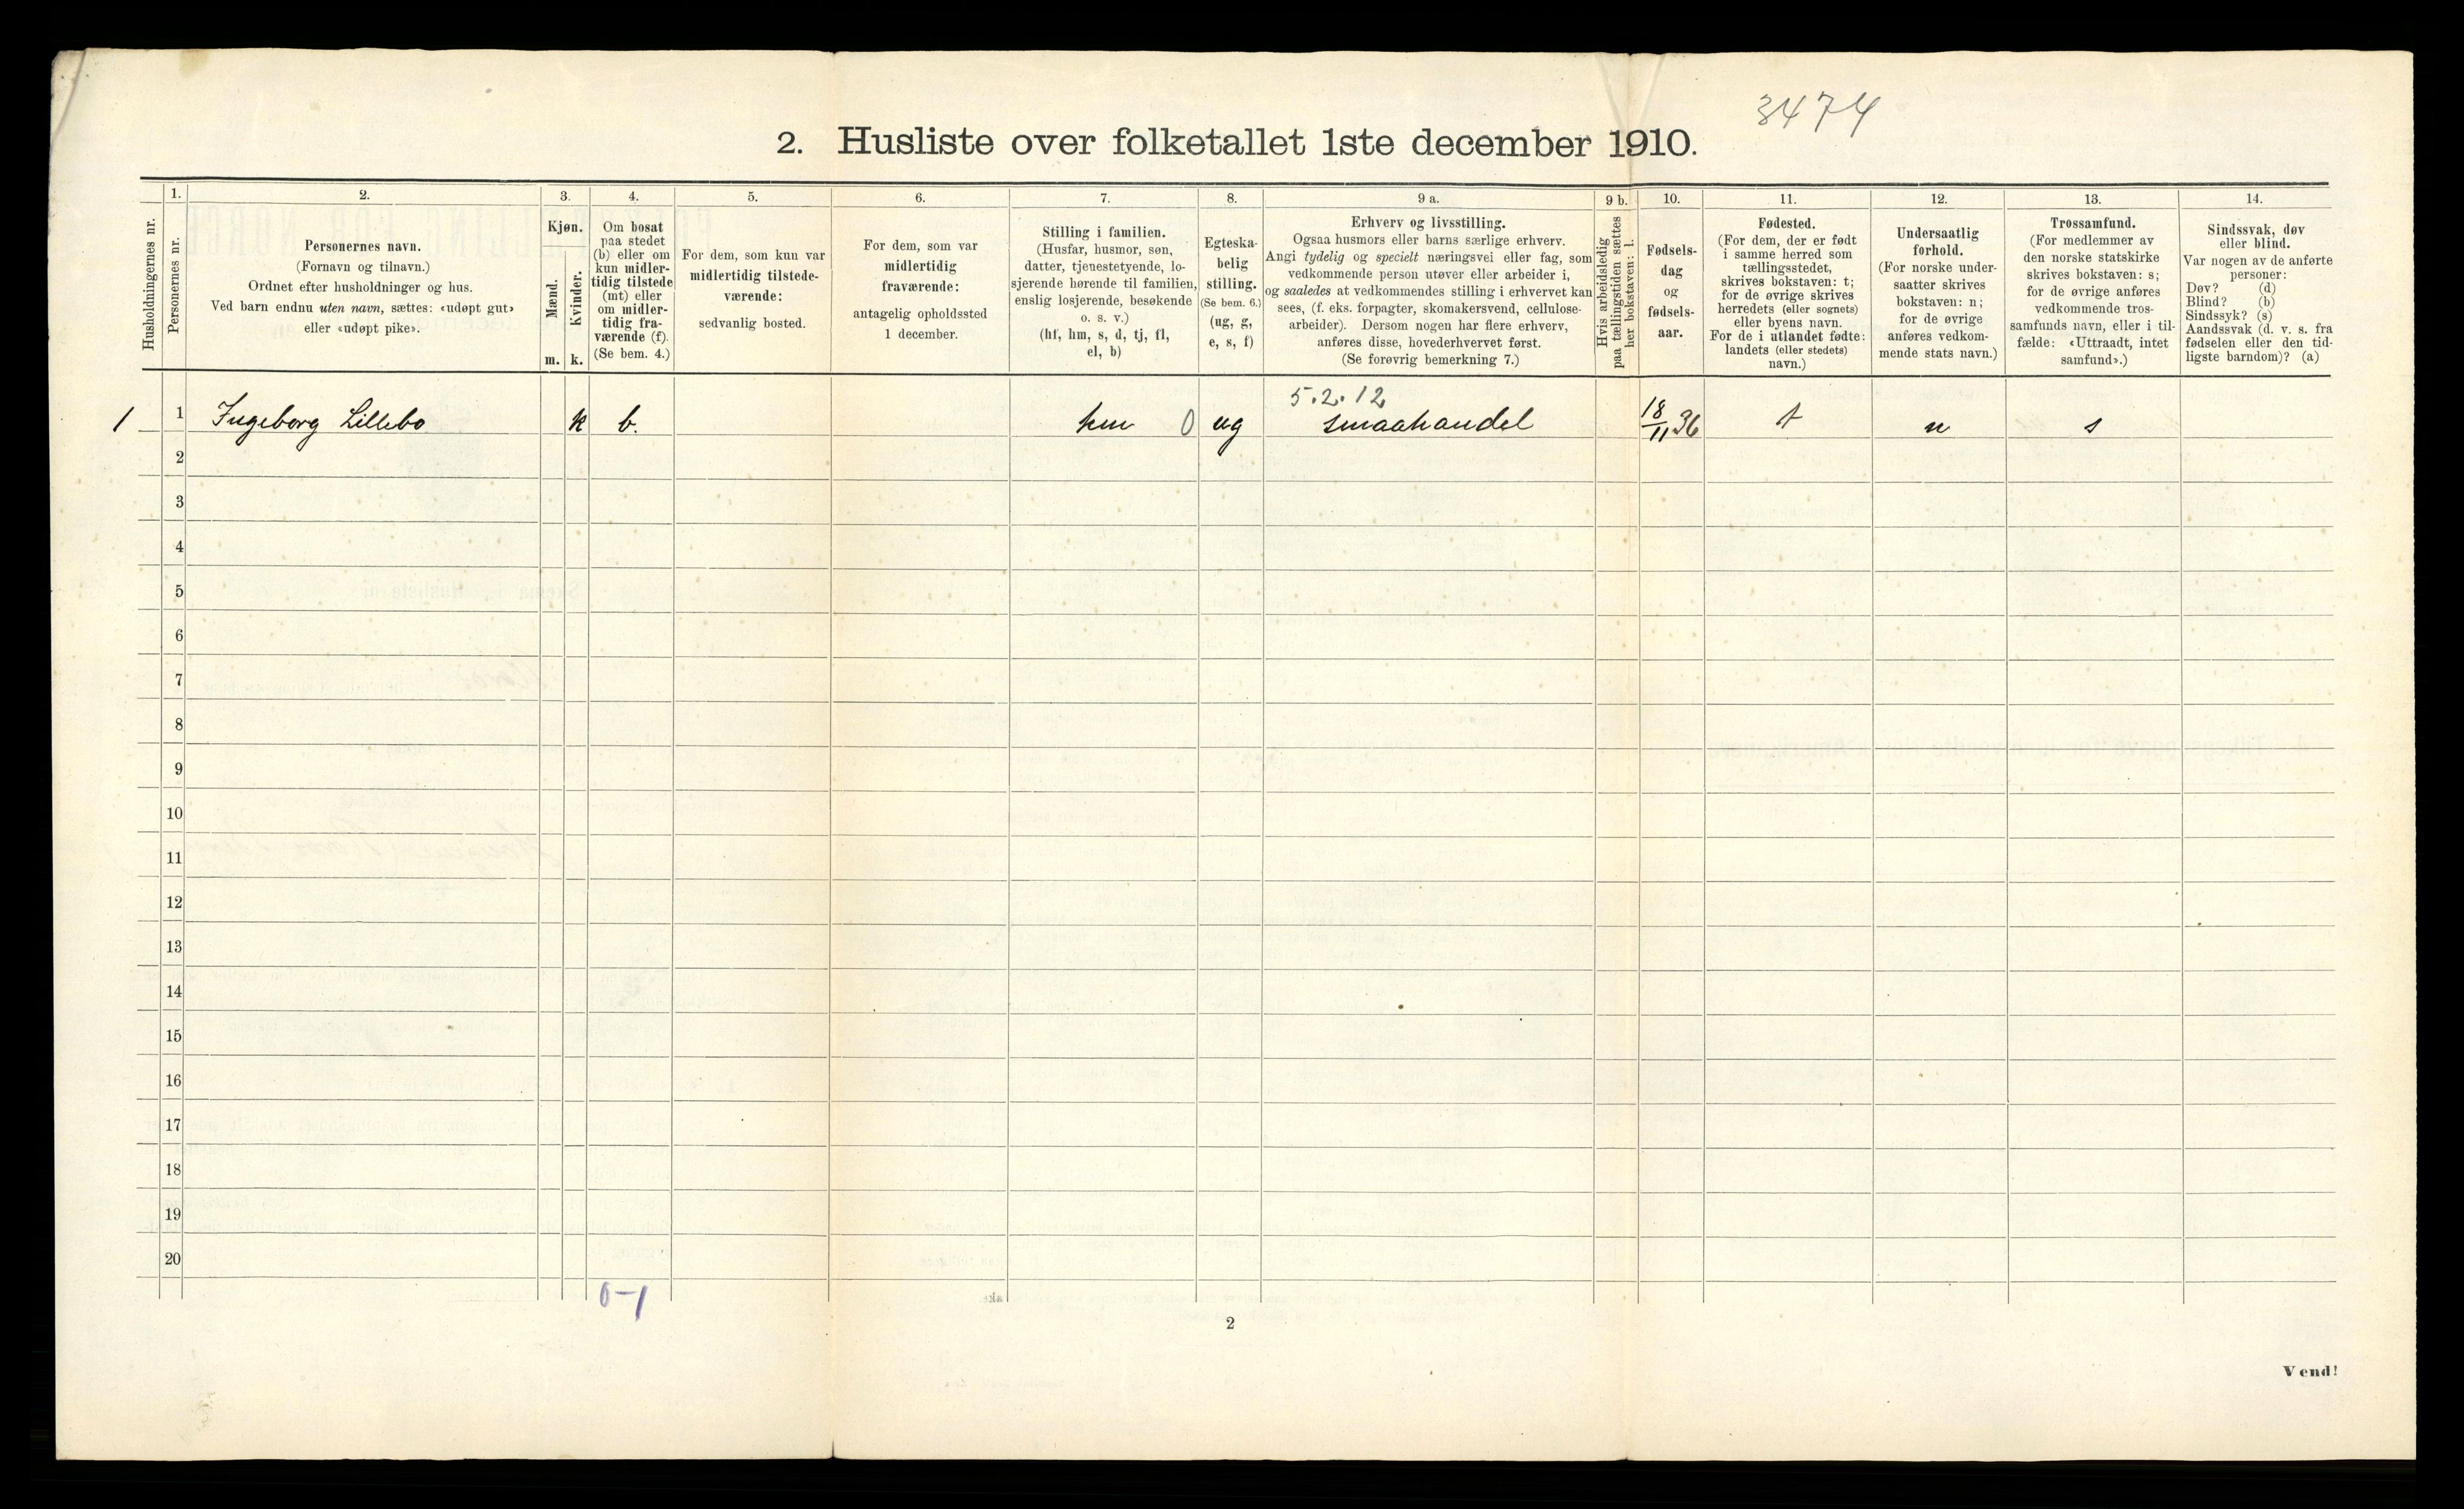 3474
2. Husliste over folketallet 1ste december 1910.
Husholdningernes nr.
1.
Personernes nr.
2.
Personernes navn.
(Fornavn og tilnavn.)
Ordnet efter husholdninger og hus.
Ved barn endnu uten navn, sættes: «udøpt gut»
eller «udøpt pike».
3.
Kjøn.
Mænd.
m.
Kvinder.
k.
4.
Om bosat
paa stedet
(b) eller om
kun midler-
tidig tilstede
(mt) eller
om midler-
tidig fra-
værende (f).
(Se bem. 4.)
5.
For dem, som kun var
midlertidig tilstede-
værende:
sedvanlig bosted.
6.
For dem, som var
midlertidig
fraværende:
antagelig opholdssted
1 december.
7.
Stilling i familien.
(Husfar, husmor, søn,
datter, tjenestetyende, lo-
sjerende hørende til familien,
enslig losjerende, besøkende
o. s. v.)
(hf, hm, s, d, tj, fl,
el, b)
8.
Egteska-
belig
stilling.
(Se bem. 6.)
(ug, g,
e, s, f)
9 a.
Erhverv og livsstilling.
Ogsaa husmors eller barns særlige erhverv.
Angi tydelig og specielt næringsvei eller fag, som
vedkommende person utøver eller arbeider i,
og saaledes at vedkommendes stilling i erhvervet kan
sees, (f. eks. forpagter, skomakersvend, cellulose-
arbeider). Dersom nogen har flere erhverv,
anføres disse, hovederhvervet først.
(Se forøvrig bemerkning 7.)
9 b.
Hvis arbeidsledig
paa tællingstiden sættes
her bokstaven: l.
10.
Fødsels-
dag
og
fødsels-
aar.
11.
Fødested.
(For dem, der er født
i samme herred som
tællingsstedet,
skrives bokstaven: t;
for de øvrige skrives
herredets (eller sognets)
eller byens navn.
For de i utlandet fødte:
landets (eller stedets)
navn.)
12.
Undersaatlig
forhold.
(For norske under-
saatter skrives
bokstaven: n;
for de øvrige
anføres vedkom-
mende stats navn.)
13.
Trossamfund.
(For medlemmer av
den norske statskirke
skrives bokstaven: s;
for de øvrige anføres
vedkommende tros-
samfunds navn, eller i til-
fælde: «Uttraadt, intet
samfund».)
14.
Sindssvak, døv
eller blind.
Var nogen av de anførte
personer:
Døv? (d)
Blind? (b)
Sindssyk? (s)
Aandssvak (d. v. s. fra
fødselen eller den tid-
ligste barndom)? (a)
5.2.12
1 1 Ingeborg Lillebo k b. hm 0 ug smaahandel 18/11 36 t n s
2
3
4
5
6
7
8
9
10
11
12
13
14
15
16
17
18
19
20
0-1
2
Vend!